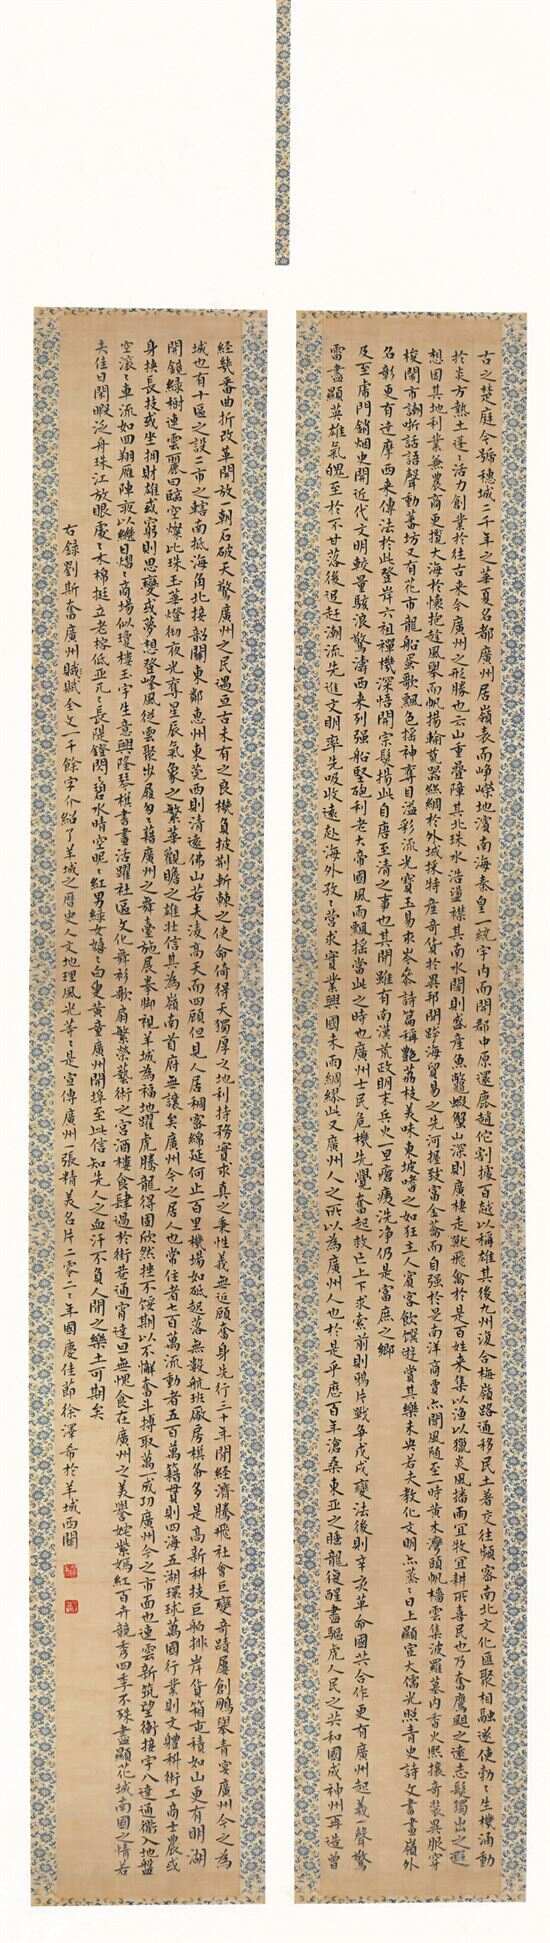 古之楚庭今號穗城二千年之華夏名都廣州居嶺表而崢嶸地濱南海秦皇一統宇内而開郡中原還鹿趙佗割據百越以稱雄其後九州復合梅嶺路通移民土著交往頻密南北文化匯聚相融遂使勃〻生機涌動
於炎方熱土蓬〻活力創業於往古來今廣州之形勝也云山重疊障其北珠水浩盪襟其南水闊則盛産魚鱉蝦蟹山深則廣棲走獸飛禽於是百姓來集以漁以獵炎風播雨宜牧宜耕所喜民也乃奮鷹颺之遠志髮獨出之遐
想因其地利業兼農商更擅大海於懷抱趁風舉而帆揚輸瓷器絲綢於外域採特産奇貨於異邦開跨海貿易之先河握致富金鑰而自强於是南洋商賈亦聞風隨至時黄木灣頭帆檣雲集波羅墓内香火熙攘奇裝異服穿
梭鬧市謝嘶話語聲動蕃坊又有花市龍船菱歌飄色搖神奪目溢彩流光寶玉易求岑參詩篇稱艷荔枝美味東坡嗜之如狂主人賓客飲饌遊賞其樂未央若夫教化文明亦蒸〻日上顯宦大儒光照青史詩文書畫嶺外
名彰更有達摩西來傳法於此登岸六祖禪機深悟開宗髮揚此自唐至清之事也其間雖有南漢荒政明末兵火一旦瘡痍洗净仍是富庶之鄉
及至虎門銷烟史開近代文明較量駭浪驚濤西來列强船堅砲利老大帝國風雨飄摇當此之時也廣州士民危機先覺奮起救亡上下求索前則鴉片戰争戊戌變法後則辛亥革命國共合作更有廣州起義一聲驚
雷盡顯英雄氣魄至於不甘落後追赶潮流先進文明率先吸收遠赴海外孜〻營求實業興國未雨綢繆此又廣州人之所以為廣州人也於是乎應百年滄桑東亞之睡龍復醒盡驅虎人民之共和國成神州再造曾
經幾番曲折改革開放一朝石破天驚廣州之民遇亘古未有之良機負披荆斬棘之使命倚得天獨厚之地利持務實求真之秉性義無返顧奮身先行三十年間經濟騰飛社會巨變奇蹟屢創鵬舉青雲廣州今之為
城也有十區之設二市之轄南抵海角北接韶關東鄰惠州東莞西則清遠佛山若夫凌高天而四顧但見人居稠密綿延何止百里機場如砥起落無數航班廠房棋布多是高新科技巨舶排岸貨箱屯積如山更有明湖
開鏡緑樹連雲麗日臨空燦比珠玉華燈徹夜光奪星辰氣象之繁華觀瞻之雄壮信其為嶺南首府無讓矣廣州今之居人也常住者七百萬流動者五百萬籍貫則四海五湖環球萬國行業則文體科術工商士農或
身挾長技或坐擁財雄或窮則思變或夢想登峰風從雲聚步履匆〻藉廣州之舞臺施展拳脚視羊城為福地躍虎騰龍得固欣然挫不餒期以不懈奮斗搏取萬一成功廣州今之市面也連雲新筑望衡接宇八達通衢入地盤
空滾〻車流如四翔雁陣夜以繼日熠〻商場似瓊樓玉宇生意興隆琴棋書畫活躍社區文化舞衫歌扇繁榮藝術之宫酒樓食肆過於街巷通宵達旦無愧食在廣州之美譽姹紫嫣紅百卉競秀四季不殊盡顯花城南國之情若
夫佳日閑暇泛舟珠江放眼處〻木棉挺立老榕低亚瓦〻長堤鐙閃〻碧水晴空晛〻紅男緑女嬉〻白叟黄童廣州開埠至此信知先人之血汗不負人間之樂土可期矣
右錄劉斯奮廣州賦賦全文一千餘字介紹了羊城之歷史人文地理風光等〻是宣傳廣州一張精美名片二零二一年國慶佳節徐澤奇於羊城西關